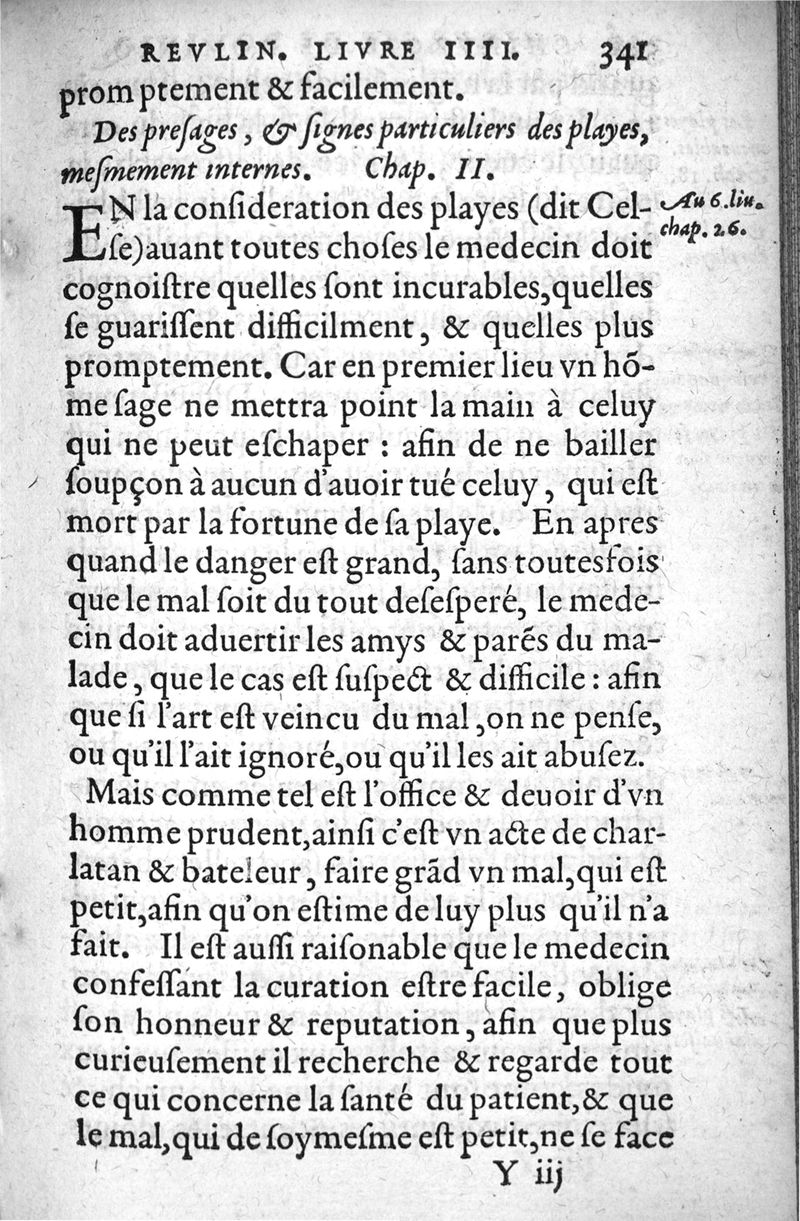 REVLIN. LIVRE IIII. 341
promptement & facilement.
Des preſages, & ſignes particuliers des playes,
meſmement internes. Chap. II.
EN la conſideration des playes (dit Cel-
ſe)auant toutes choſes le medecin doit
Au 6.liu.
chap. 26.
cognoiſtre quelles ſont incurables,quelles
ſe guariſſent difficilment, & quelles plus
promptement. Car en premier lieu vn hõ-
me ſage ne mettra point la main à celuy
qui ne peut eſchaper : afin de ne bailler
ſoupçon à aucun d'auoir tué celuy, qui eſt
mort par la fortune de ſa playe. En apres
quand le danger eſt grand, ſans toutesfois
que le mal ſoit du tout deſeſperé, le mede-
cin doit aduertir les amys & parẽs du ma-
lade, que le cas eſt ſuſpect & difficile : afin
que ſi l'art eſt veincu du mal ,on ne penſe,
ou qu'il l'ait ignoré,ou qu'il les ait abuſez.
Mais comme tel eſt l'office & deuoir d'vn
homme prudent,ainſi c'eſt vn acte de char-
latan & bateleur, faire grãd vn mal,qui eſt
petit,afin qu'on eſtime de luy plus qu'il n'a
fait. Il eſt auſſi raiſonable que le medecin
confeſſant la curation eſtre facile, oblige
ſon honneur & reputation, afin que plus
curieuſement il recherche & regarde tout
ce qui concerne la ſanté du patient,& que
le mal,qui de ſoymeſme eſt petit,ne ſe face
Y iij